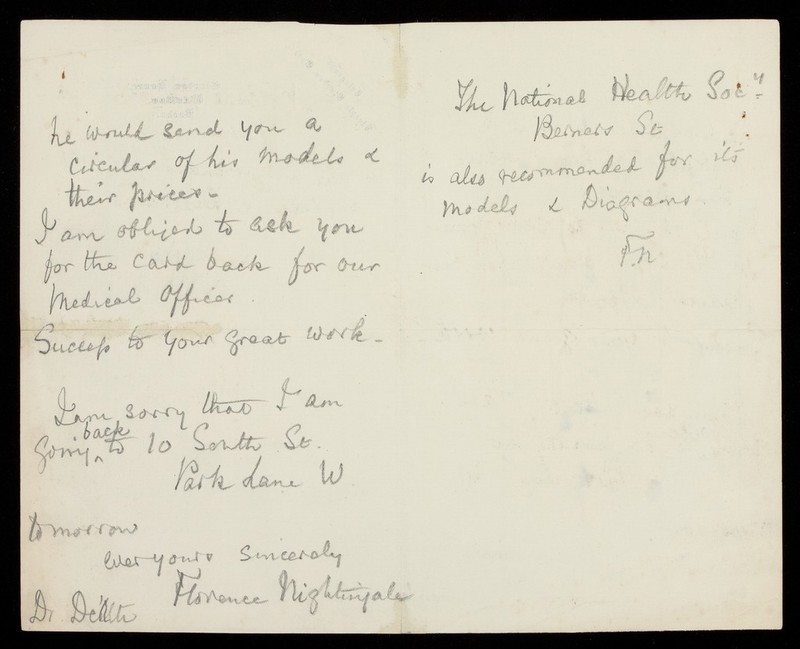 he would send you a
circular of his models &
their prices -
I am obliged to ask you
for the card back for our
Medical Officer.
Success to your great work -
I am sorry that I am
back
going ^ to 10 South St.
Park Lane W
tomorrow
ever yours sincerely
Florence Nightingale
Dr De'Ath
The National Health Socy.
Berners St
is also recommended for its
models & Diagrams
F.N.